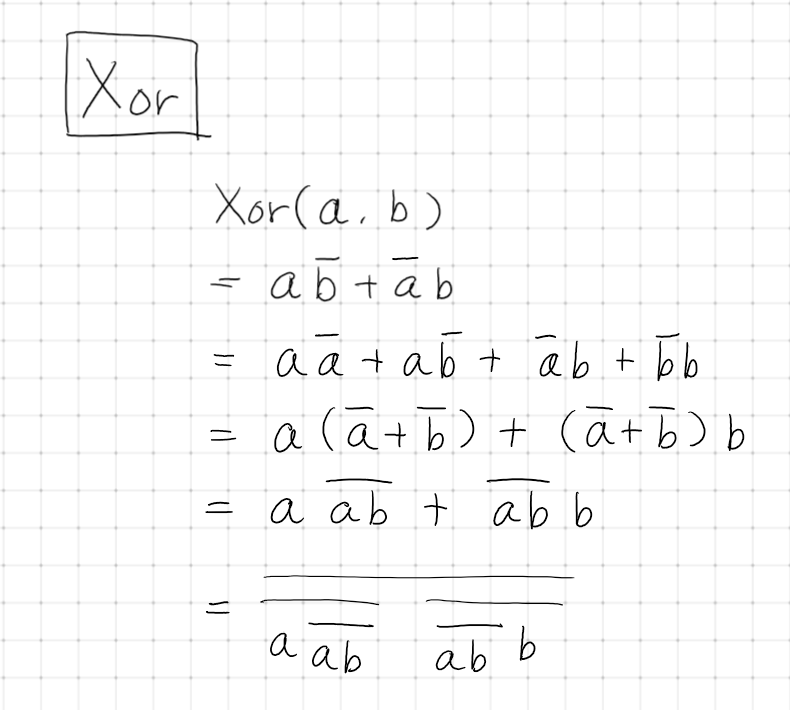 Xor
Xor(a, b)
= a b̅ + a̅ b
= a a̅ + a b̅ + a̅ b + b̅ b
= a (a̅ + b̅) + (a̅ + b̅) b
= a \overline{ab} + \overline{ab} b
= \overline{\overline{a \overline{ab}} \overline{\overline{ab} b}}